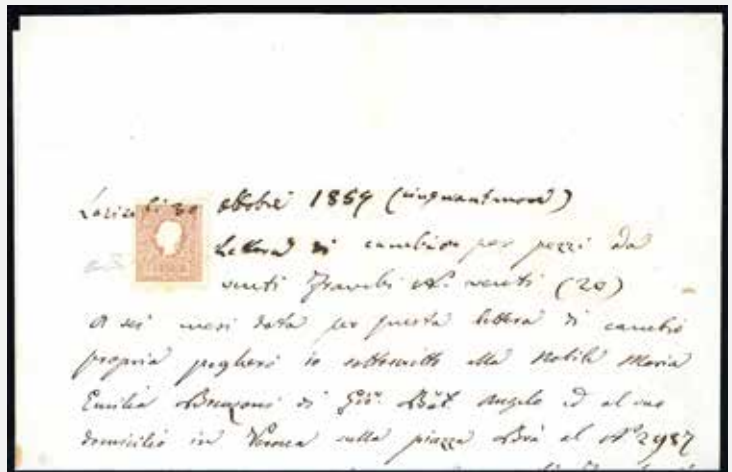 li 30 ottobre 1859 (cinquantanove)
Lettera di cambio per pezzi da
venti Franchi N. venti (20)
A sei mesi data per questa lettera di cambio
propria pagherò io sottoscritto alla Nobile Maria
Emilia di Gio. Bat. Angelo ed al suo
domicilio in Verona sulla piazza Brà al N° 2987